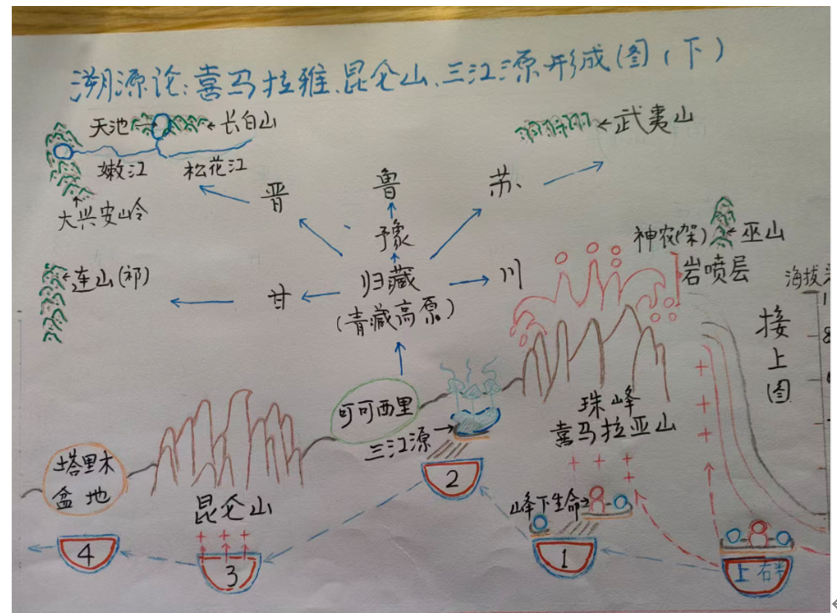 溯源论:喜马拉雅、昆仑山、三江源形成图(下)
天池→ ←长白山
嫩江 松花江
大兴安岭
←武夷山
晋 鲁 苏
豫
神农(架) ←巫山
岩喷层
海拔
←连山(祁)
甘 归藏 川
(青藏高原)
接上图
可可西里
三江源→
珠峰
喜马拉亚山
塔里木
盆地
昆仑山
峰下生命→
+ + + +
4 3 2 1
上 右半